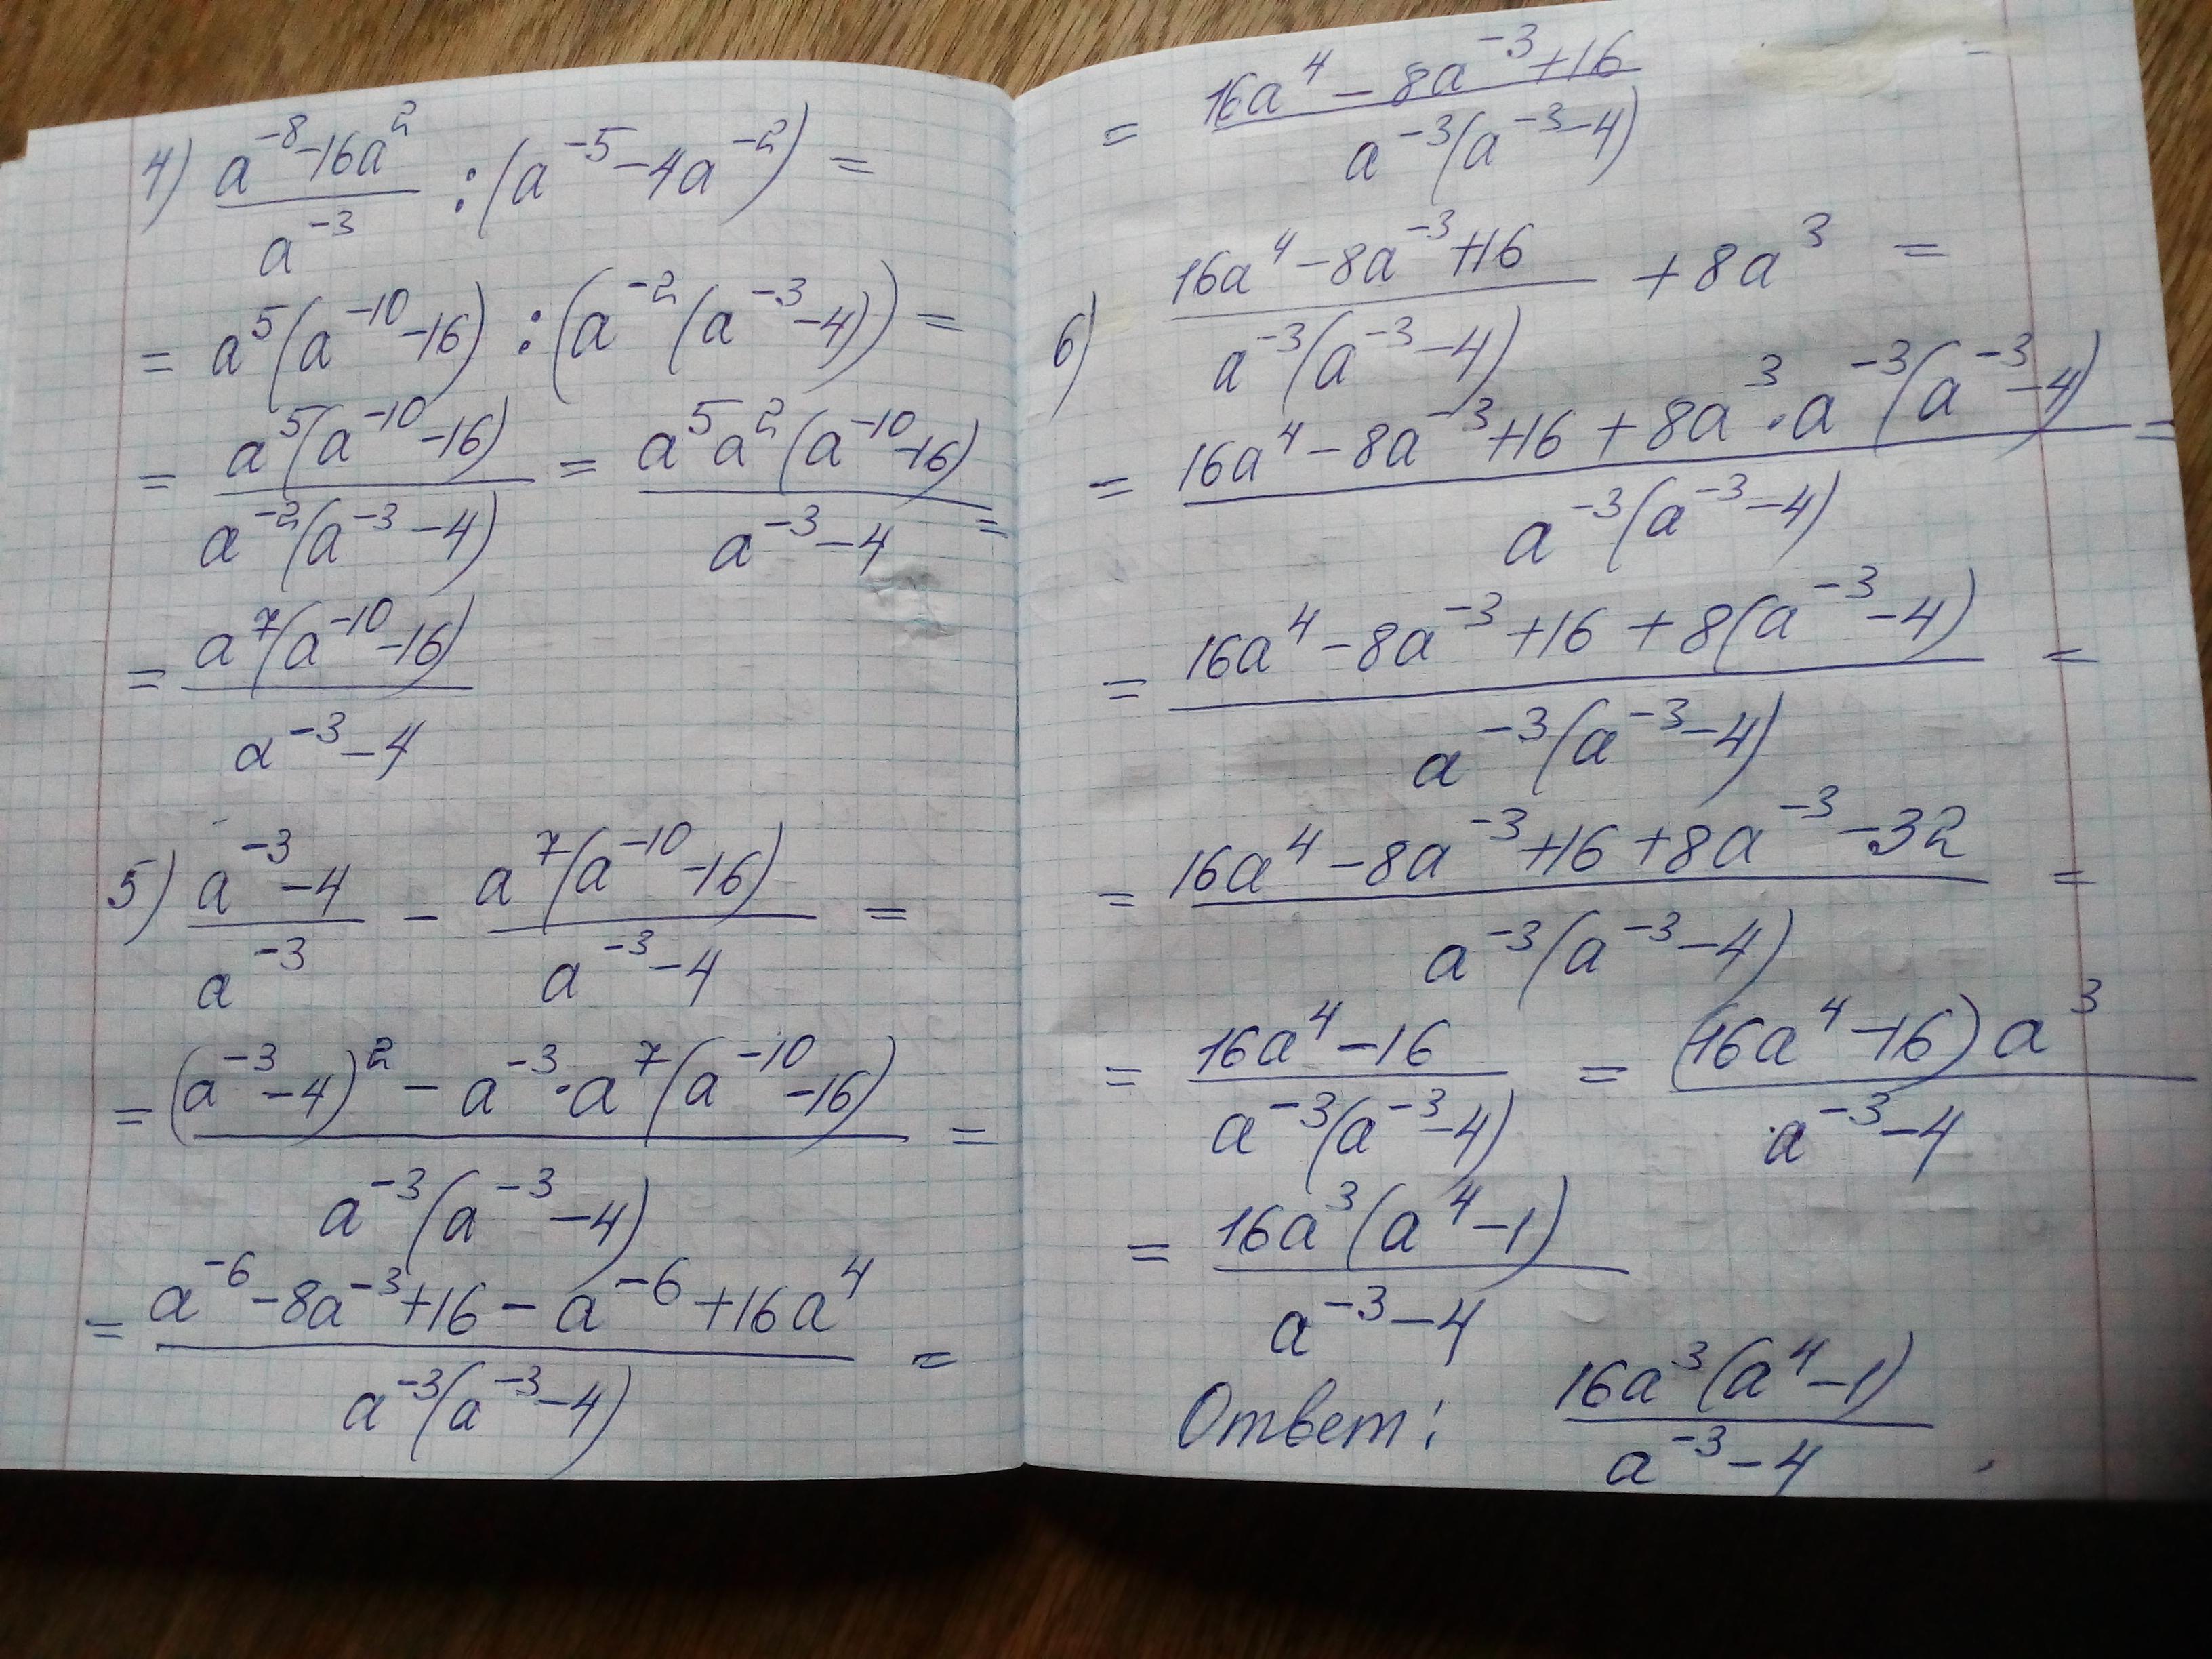 4) \frac{a^{-8}-16a^{2}}{a^{-3}} : (a^{-5}-4a^{-2}) =
= a^{5}(a^{-10}-16) : (a^{-2}(a^{-3}-4)) =
= \frac{a^{5}(a^{-10}-16)}{a^{-2}(a^{-3}-4)} = \frac{a^{5}a^{2}(a^{-10}-16)}{a^{-3}-4} =
= \frac{a^{7}(a^{-10}-16)}{a^{-3}-4}
5) \frac{a^{-3}-4}{a^{-3}} - \frac{a^{7}(a^{-10}-16)}{a^{-3}-4} =
= \frac{(a^{-3}-4)^{2} - a^{-3} \cdot a^{7}(a^{-10}-16)}{a^{-3}(a^{-3}-4)} =
= \frac{a^{-6}-8a^{-3}+16-a^{-6}+16a^{4}}{a^{-3}(a^{-3}-4)} =
= \frac{16a^{4}-8a^{-3}+16}{a^{-3}(a^{-3}-4)}
6) \frac{16a^{4}-8a^{-3}+16}{a^{-3}(a^{-3}-4)} + 8a^{3} =
= \frac{16a^{4}-8a^{-3}+16+8a^{3} \cdot a^{-3}(a^{-3}-4)}{a^{-3}(a^{-3}-4)} =
= \frac{16a^{4}-8a^{-3}+16+8(a^{-3}-4)}{a^{-3}(a^{-3}-4)} =
= \frac{16a^{4}-8a^{-3}+16+8a^{-3}-32}{a^{-3}(a^{-3}-4)} =
= \frac{16a^{4}-16}{a^{-3}(a^{-3}-4)} = \frac{(16a^{4}-16)a^{3}}{a^{-3}-4}
= \frac{16a^{3}(a^{4}-1)}{a^{-3}-4}
Ответ: \frac{16a^{3}(a^{4}-1)}{a^{-3}-4}.